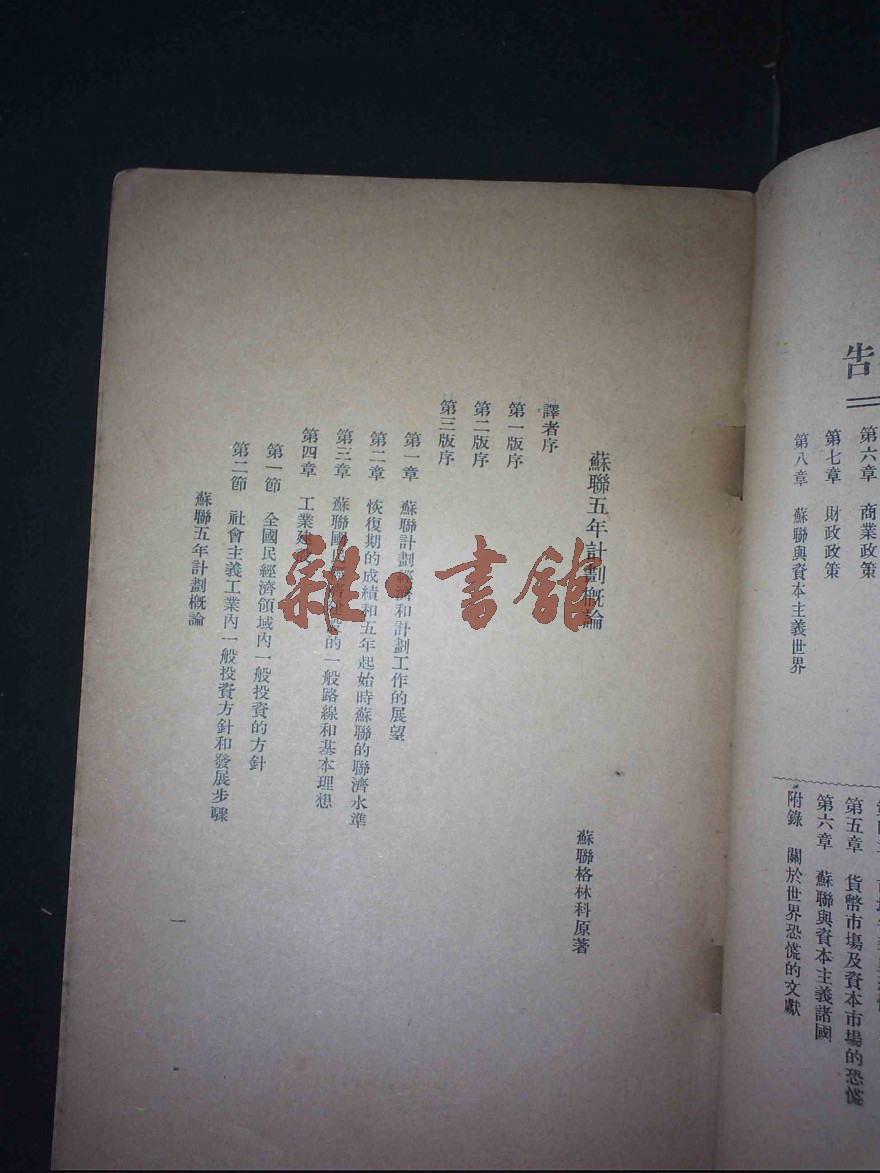 告
第六章 商業政策
第七章 財政政策
第八章 蘇聯與資本主義世界
第五章 貨幣市場及資本市場的恐慌
第六章 蘇聯與資本主義諸國
附錄 關於世界恐慌的文獻
蘇聯五年計劃概論
蘇聯格林科原著
譯者序
第一版序
第二版序
第三版序
第一章 蘇聯計劃經濟和計劃工作的展望
第二章 恢復期的成績和五年起始時蘇聯的聯濟水準
第三章 蘇聯國民經濟的一般路線和基本理想
第四章 工業建
第一節 全國民經濟領域內一般投資的方針
第二節 社會主義工業內一般投資方針和發展步驟
蘇聯五年計劃概論
一
雜·書館